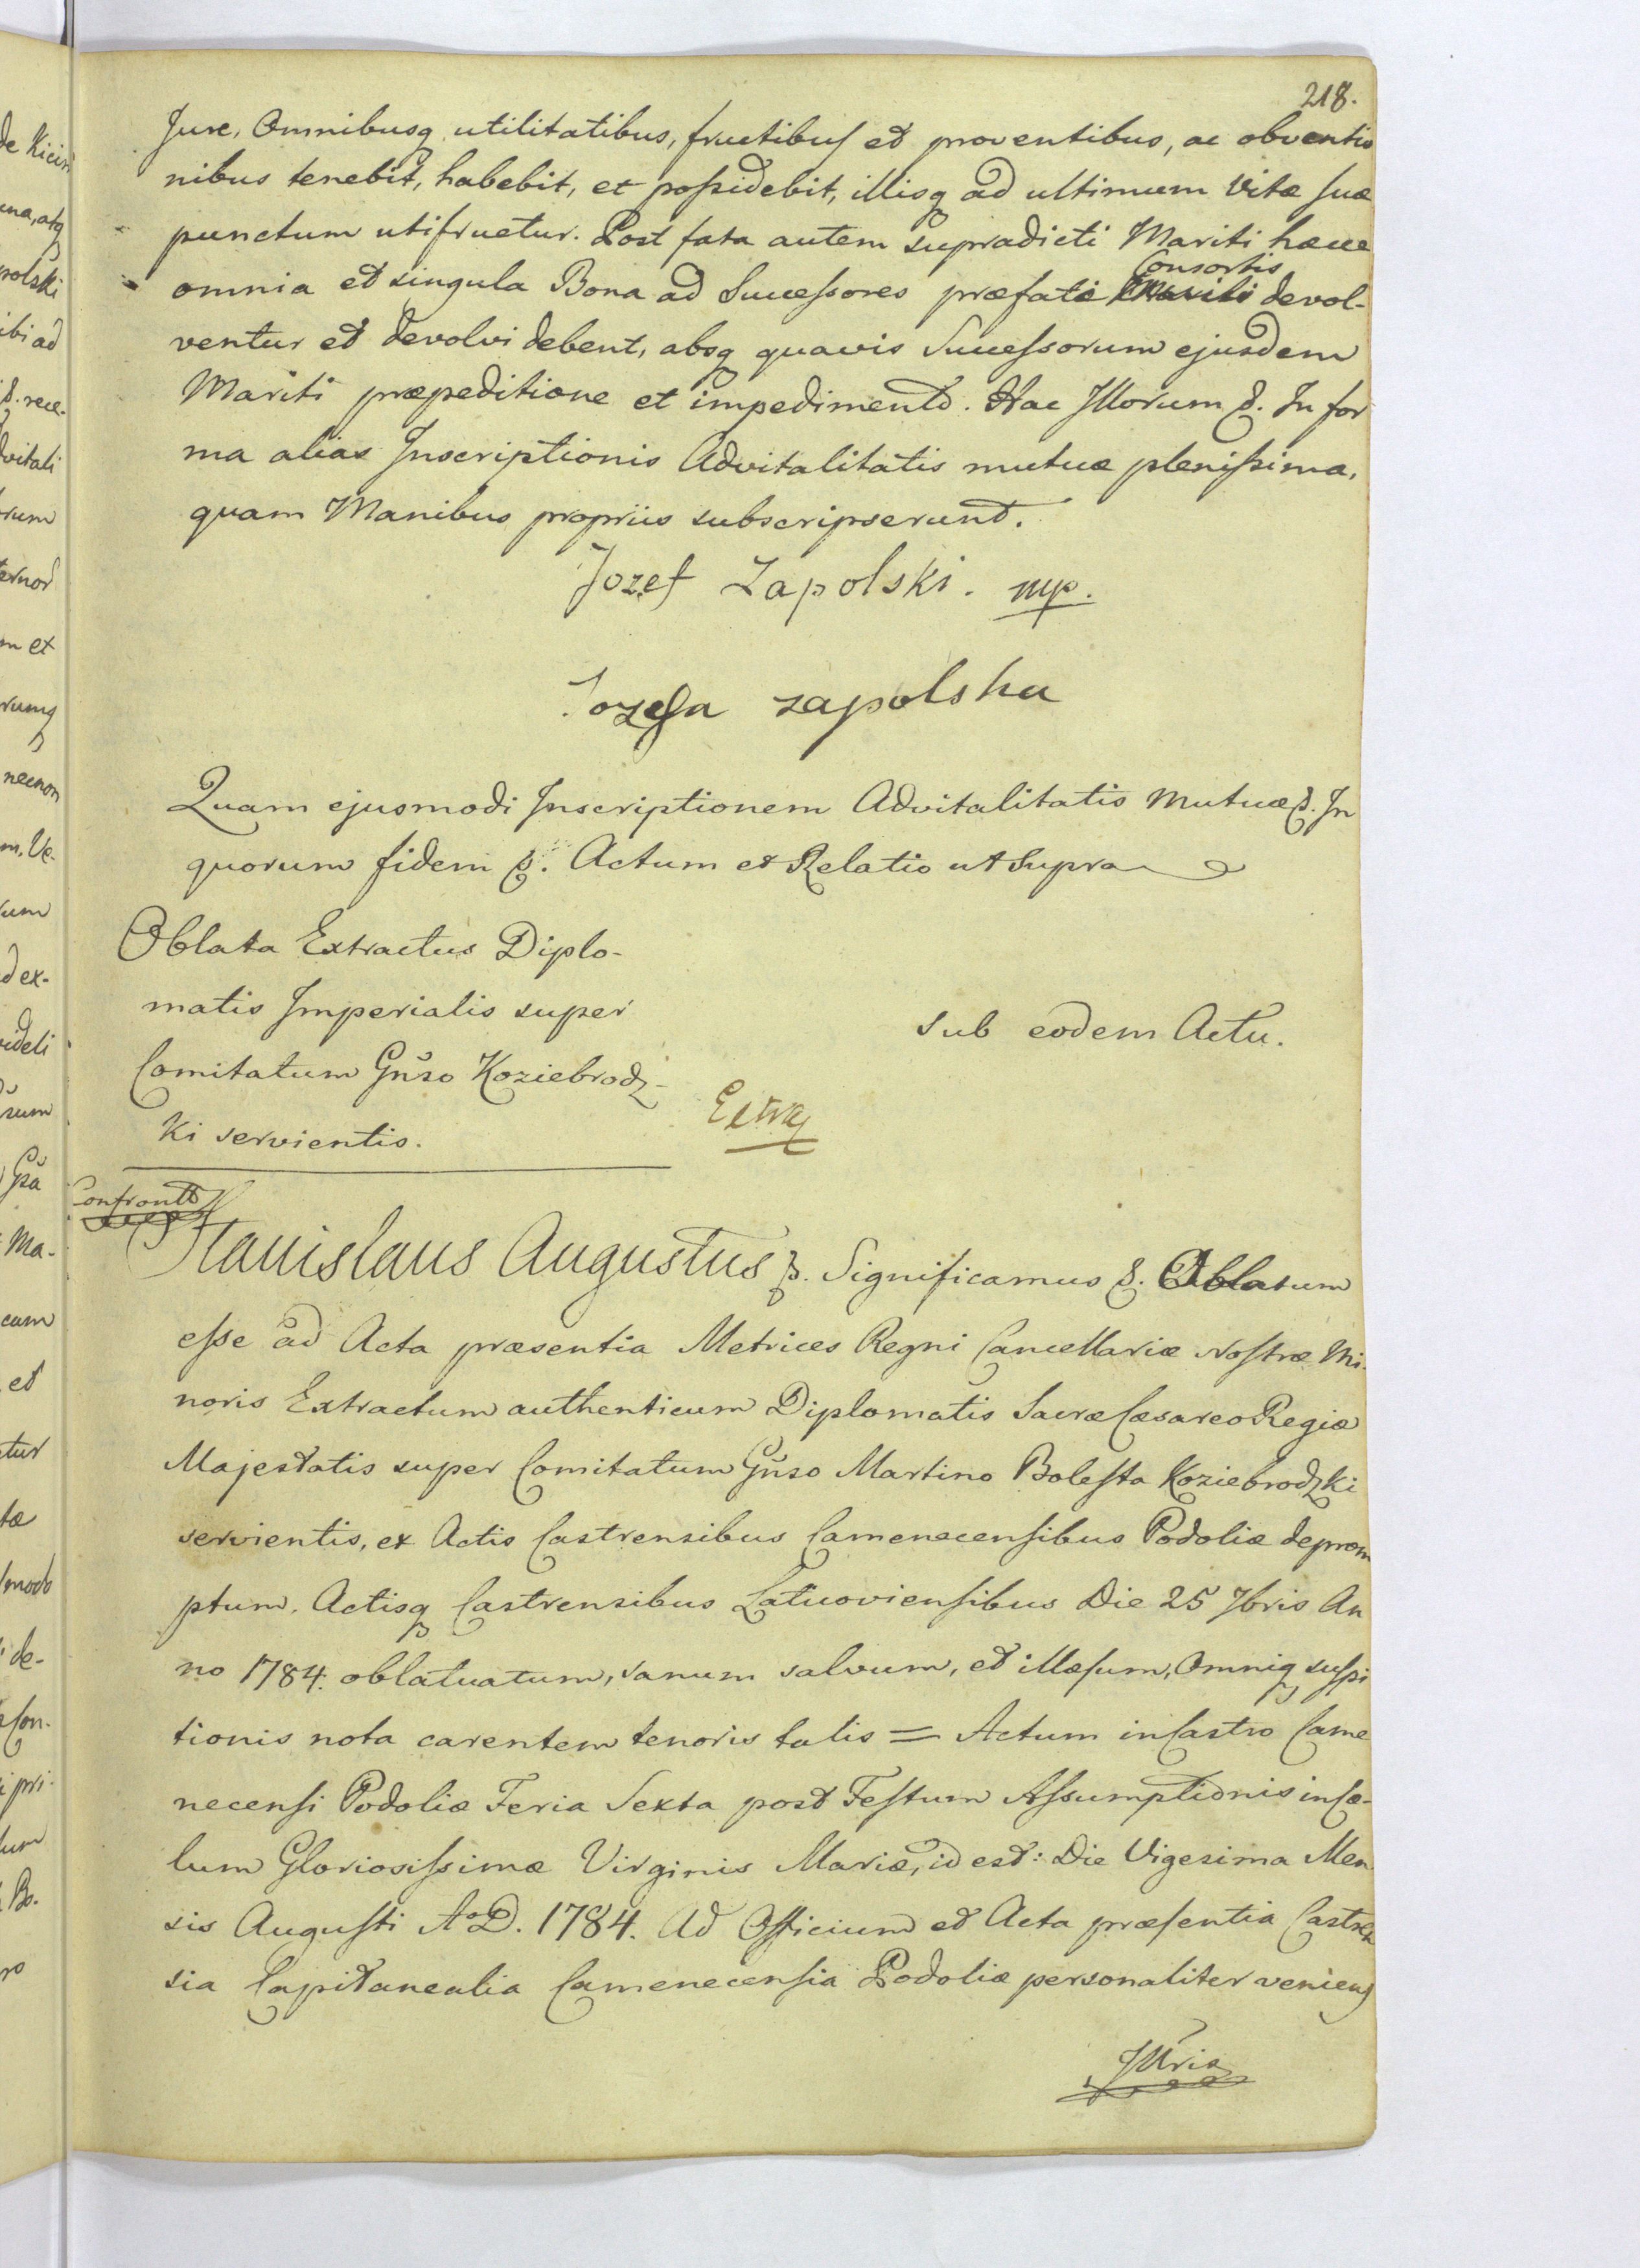 218.
Jure, Omnibusq utilitatibus, fructibus et proventibus, ac obventio
nibus tenebit, habebit, et possidebit, illisq ad ultimum Vitæ suæ
punctum utifruetur. Post fata autem supradicti Mariti hæcce
Consortis
omnia et singula Bona ad Successores præfatæ Mariti devol-
ventur et devolvi debent, absq quavis Successorum ejusdem
Mariti præpeditione et impedimento. Hac Illorum &. In for
ma alias Inscriptionis Advitalitatis mutuæ plenissima,
quam Manibus propriis subscripserunt.
Jozef Zapolski. mp.
Jozefa zapolska
Quam ejusmodi Inscriptionem Advitalitatis Mutuæ &. In
quorum fidem &. Actum et Relatio ut Supra
Oblata Extractus Diplo-
matis Imperialis super
Comitatum Gn̄so Koziebrodz-
ki servientis.
sub eodem Actu.
Extra
Confrontt
Stanislaus Augustus &. Significamus &. Oblatum
esse ad Acta præsentia Metrices Regni Cancellariæ Nostræ Mi-
noris Extractum authenticum Diplomatis Sacræ Cæsareo Regiæ
Majestatis super Comitatum Gn̄so Martino Bolesta Koziebrodzki
servientis, ex Actis Castrensibus Camenecensibus Podoliæ deprom
ptum, Actisq Castrensibus Latuoviensibus Die 25 7bris An
no 1784. oblatuatum, sanum salvum, et illæsum, Omniq suspi
tionis nota carentem tenoris talis = Actum in Castro Came
necensi Podoliæ Feria Sexta post Festum Assumptionis in Cæ-
lum Gloriosissimæ Virginis Mariæ, id est: Die Vigesima Men
sis Augusti Ao D. 1784. Ad Officium et Acta præsentia Castren
sia Capitanealia Camenecensia Podoliæ personaliter veniens
Illris